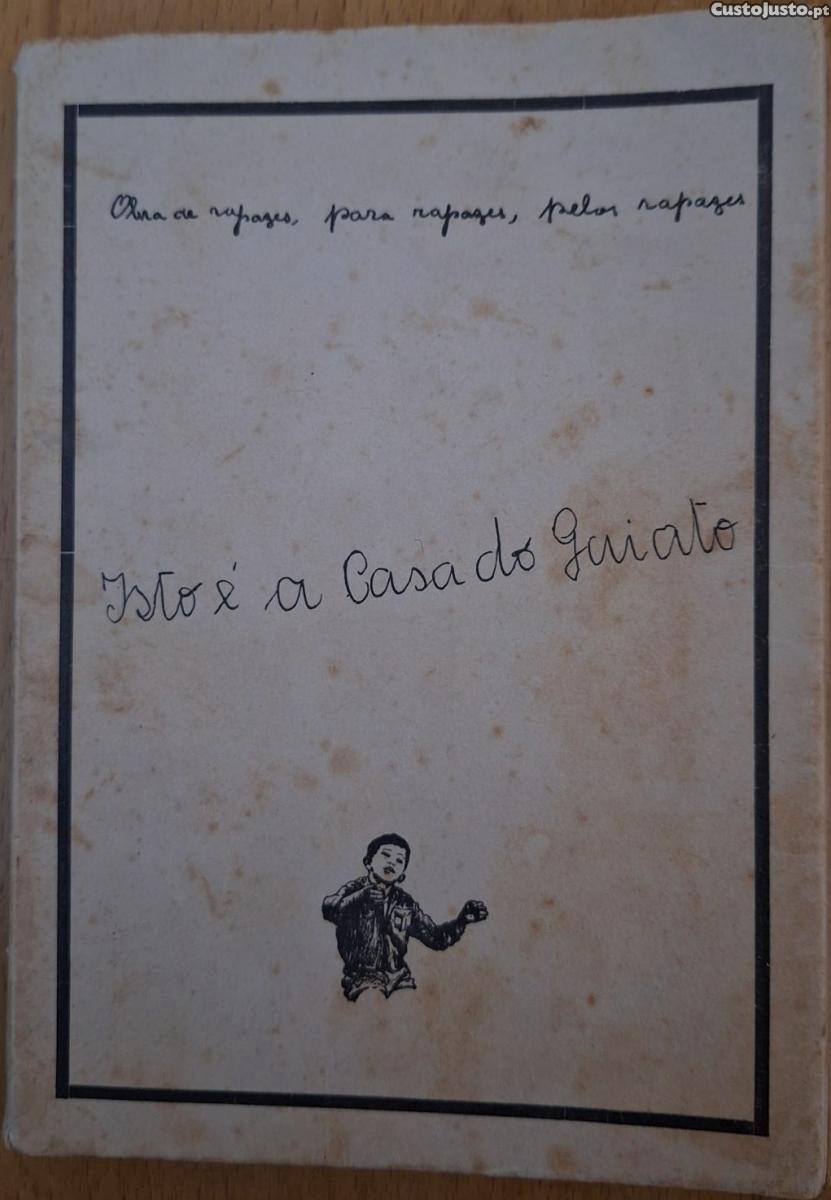 CustoJusto.pt
Obra de rapazes, para rapazes, pelos rapazes
Isto é a Casa do Gaiato